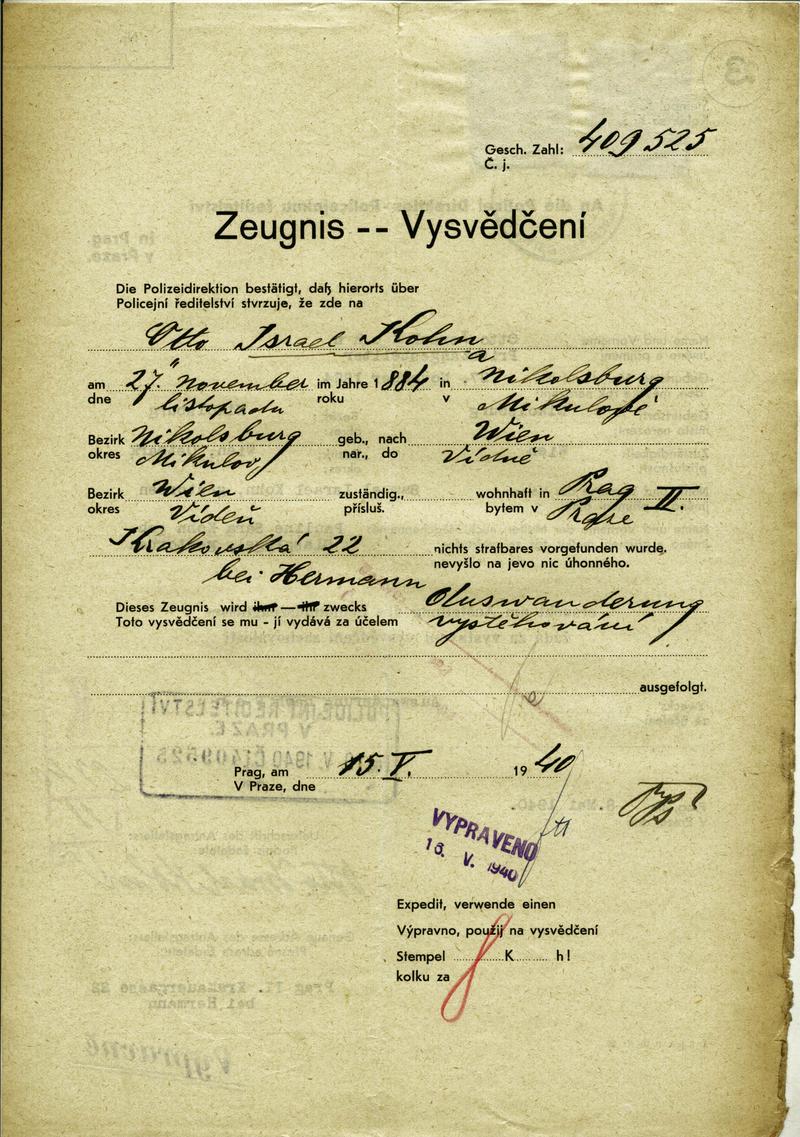 Gesch. Zahl: 409525
Č. j.
Zeugnis -- Vysvědčení
Die Polizeidirektion bestätigt, daß hierorts über
Policejní ředitelství stvrzuje, že zde na
Otto Israel Kohn
am 27. November im Jahre 1884 in Nikolsburg
dne listopadu roku v Mikulově
Bezirk Nikolsburg geb., nach Wien
okres Mikulov nar., do Vídně
Bezirk Wien zuständig., wohnhaft in Prag II.
okres Vídeň přísluš. bytem v Praze
Krakovská 22 nichts strafbares vorgefunden wurde.
nevyšlo na jevo nic úhonného.
bei Hermann
Dieses Zeugnis wird ihm — ihr zwecks Auswanderung
Toto vysvědčení se mu - jí vydává za účelem vystěhování
ausgefolgt.
POLICEJNÍ ŘEDITELSTVÍ
V PRAZE
V. 1940 Č 409525
Prag, am 15. V. 1940
V Praze, dne
VYPRAVENO
16. V. 1940
Expedit, verwende einen
Výpravno, použij na vysvědčení
Stempel K h!
kolku za
Prag II. Krakauergasse 22
bei Hermann